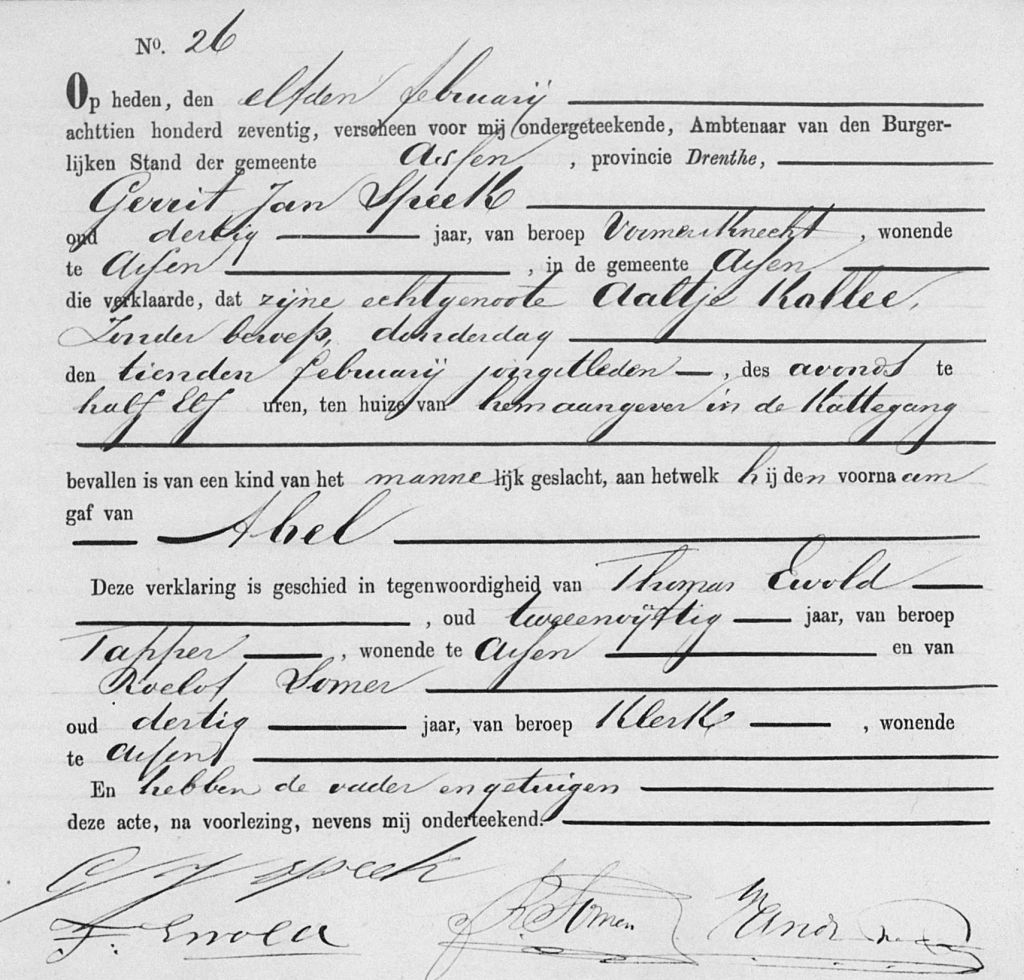 No. 26
Op heden, den elfden februarij
achttien honderd zeventig, verscheen voor mij ondergeteekende, Ambtenaar van den Burger-
lijken Stand der gemeente Assen, provincie Drenthe,
Gerrit Jan Speek
oud dertig jaar, van beroep Ververs Knecht, wonende
te Assen, in de gemeente Assen
die verklaarde, dat zijne echtgenoote Aaltje Kallee,
Zonder beroep, donderdag
den tienden februarij jongstleden, des avonds te
half Elf uren, ten huize van hem aangever in de Kattegang
bevallen is van een kind van het mannelijk geslacht, aan hetwelk hij den voornaam
gaf van Abel
Deze verklaring is geschied in tegenwoordigheid van Thomas Ewold
, oud tweeenvijftig jaar, van beroep
Tapper, wonende te Assen en van
Roelof Somer
oud dertig jaar, van beroep Klerk, wonende
te Assen
En hebben de vader en getuigen
deze acte, na voorlezing, nevens mij onderteekend.
G J Speek
T. Ewold R Somer